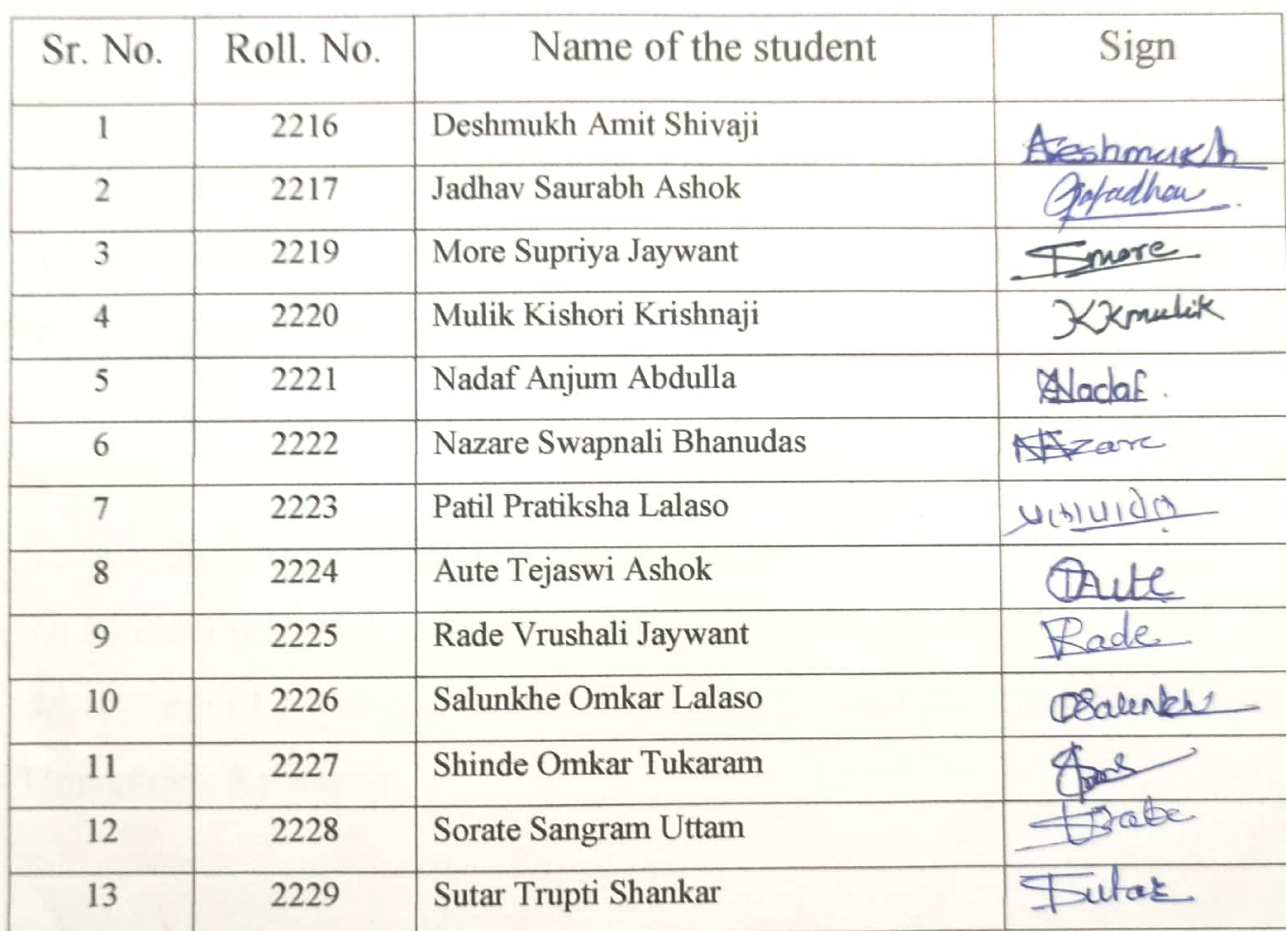 Sr. No. Roll. No. Name of the student Sign
1 2216 Deshmukh Amit Shivaji Adeshmukh
2 2217 Jadhav Saurabh Ashok
3 2219 More Supriya Jaywant Smore
4 2220 Mulik Kishori Krishnaji KKmulik
5 2221 Nadaf Anjum Abdulla ANadaf.
6 2222 Nazare Swapnali Bhanudas Nazare
7 2223 Patil Pratiksha Lalaso
8 2224 Aute Tejaswi Ashok TAute
9 2225 Rade Vrushali Jaywant Rade
10 2226 Salunkhe Omkar Lalaso
11 2227 Shinde Omkar Tukaram
12 2228 Sorate Sangram Uttam
13 2229 Sutar Trupti Shankar Sutar